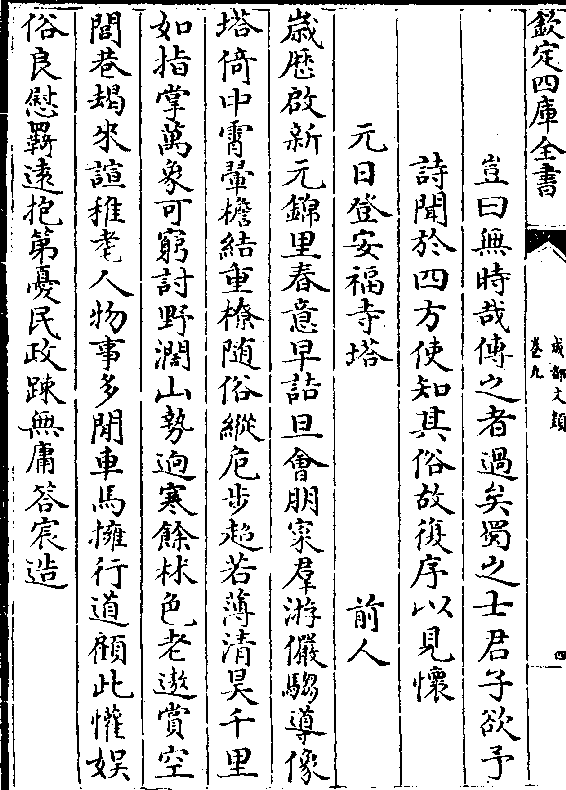 欽定四庫全書
成都文類
卷九
四
豈曰無時哉傳之者過矣蜀之士君子欲予
詩聞於四方使知其俗故復序以見懷
元日登安福寺塔 前人
歳歴啟新元錦里春意早詰旦會朋寀羣游儼騶導像
塔倚中霄翬檐結重橑随俗縱危步超若薄清昊千里
如指掌萬象可窮討野濶山勢逈寒餘林色老遨賞空
閭巷朅來諠稚耄人物事多閒車馬擁行道顧此懽娱
俗良慰羇遠抱第憂民政踈無庸答宸造